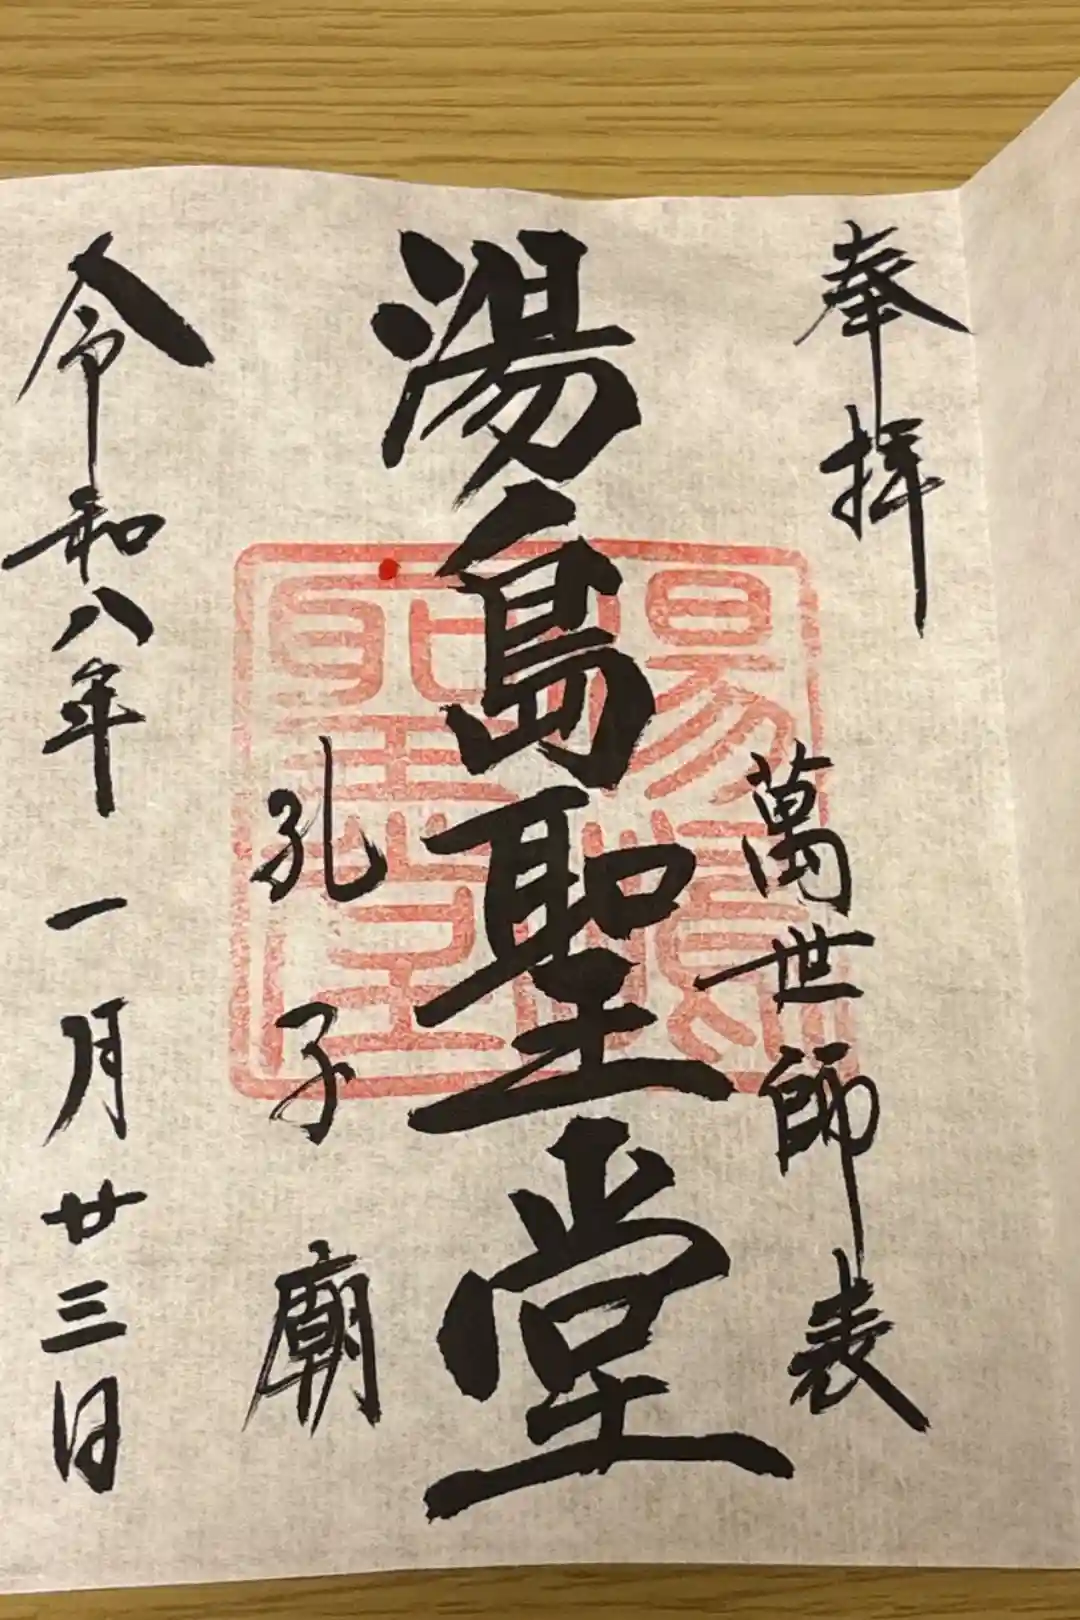 奉拝
萬世師表
湯島聖堂
孔子廟
令和八年一月廿三日
湯島聖堂